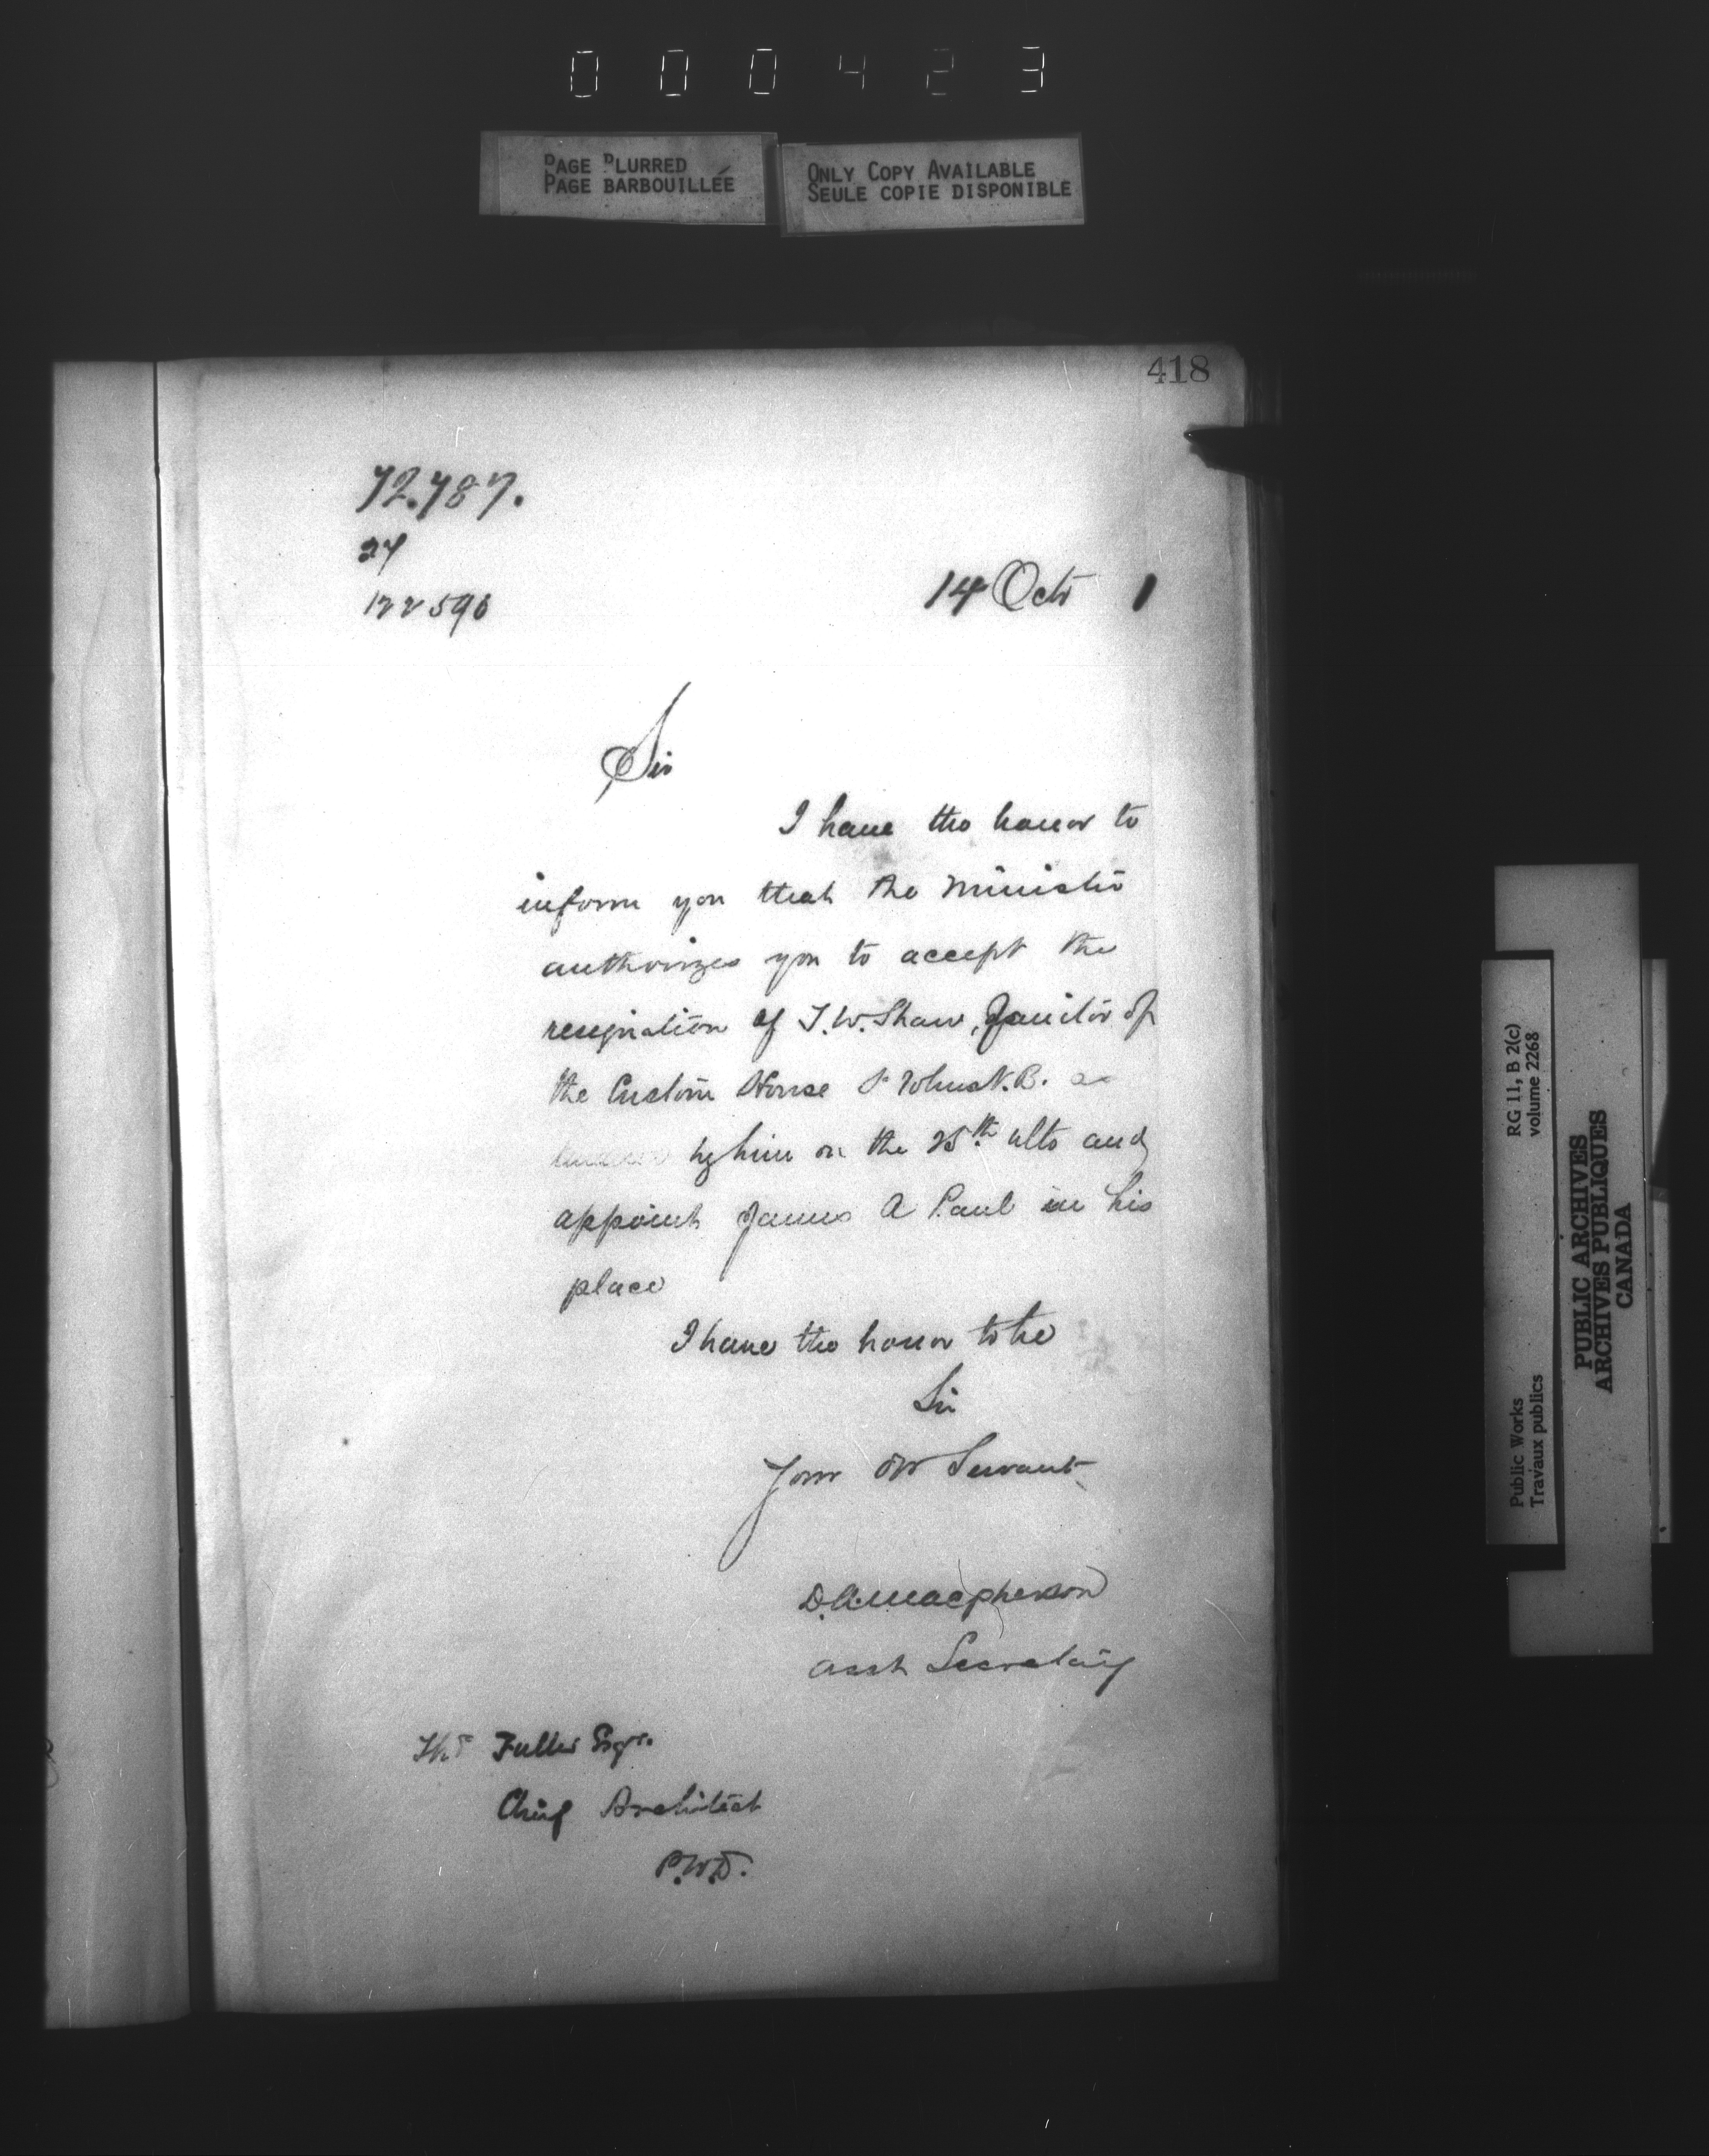 000423
PAGE BLURRED
PAGE BARBOUILLÉE
ONLY COPY AVAILABLE
SEULE COPIE DISPONIBLE
418
72.787.
27
122590
14 Octr 1
Sir
I have the honor to
inform you that the Minister
authorizes you to accept the
resignation of T.W. Shaw, Janitor of
the Custom House St Johns N.B. as
by him on the 25th ulto and
appoint James A Paul in his
place
I have the honor to be
Sir
Your Obt Servant
D.A. Macpherson
Asst Secretary
Ths Fuller Esqr.
Chief Architect
P.W.D.
RG 11, B 2(c)
volume 2268
Public Works
Travaux publics
PUBLIC ARCHIVES
ARCHIVES PUBLIQUES
CANADA